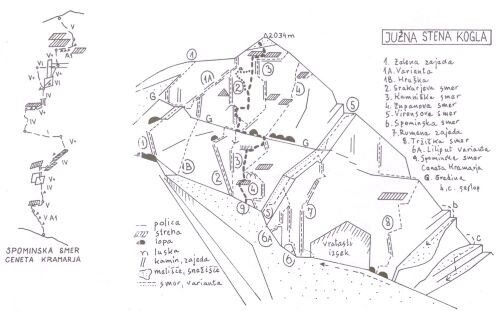 JUŽNA STENA KOGLA
△2034m
1. Zelena zajeda
1A. Varianta
1B. Hruška
2. Grakarjeva smer
3. Kamniška smer
4. Zupanova smer
5. Virensova smer
6. Spominska smer
7. Rumena zajeda
8. Tržiška smer
6A. Liliput varianta
9. Spominska smer
Ceneta Kramarja
G. Gredina
b, c.
polica
streha
lopa
luska
kamin, zajeda
melišče, snežišče
smer, varianta
vratasti
izsek
SPOMINSKA SMER
CENETA KRAMARJA